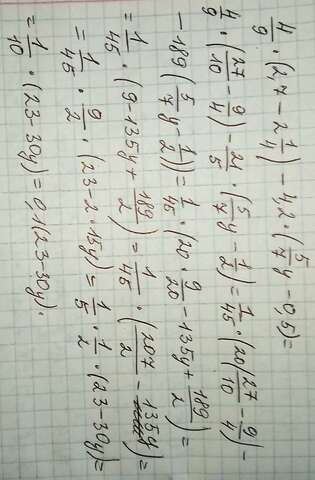 4/9 · (2,7 - 2 1/4) - 4,2 · (5/7 y - 0,5) =
4/9 · (27/10 - 9/4) - 21/5 · (5/7 y - 1/2) = 1/45 · (20(27/10 - 9/4) -
- 189 (5/7 y - 1/2)) = 1/45 · (20 · 9/20 - 135y + 189/2) =
= 1/45 · (9 - 135y + 189/2) = 1/45 · (207/2 - 135y) =
= 1/45 · 9/2 · (23 - 2 · 15y) = 1/5 · 1/2 · (23 - 30y) =
= 1/10 · (23 - 30y) = 0,1(23 - 30y).